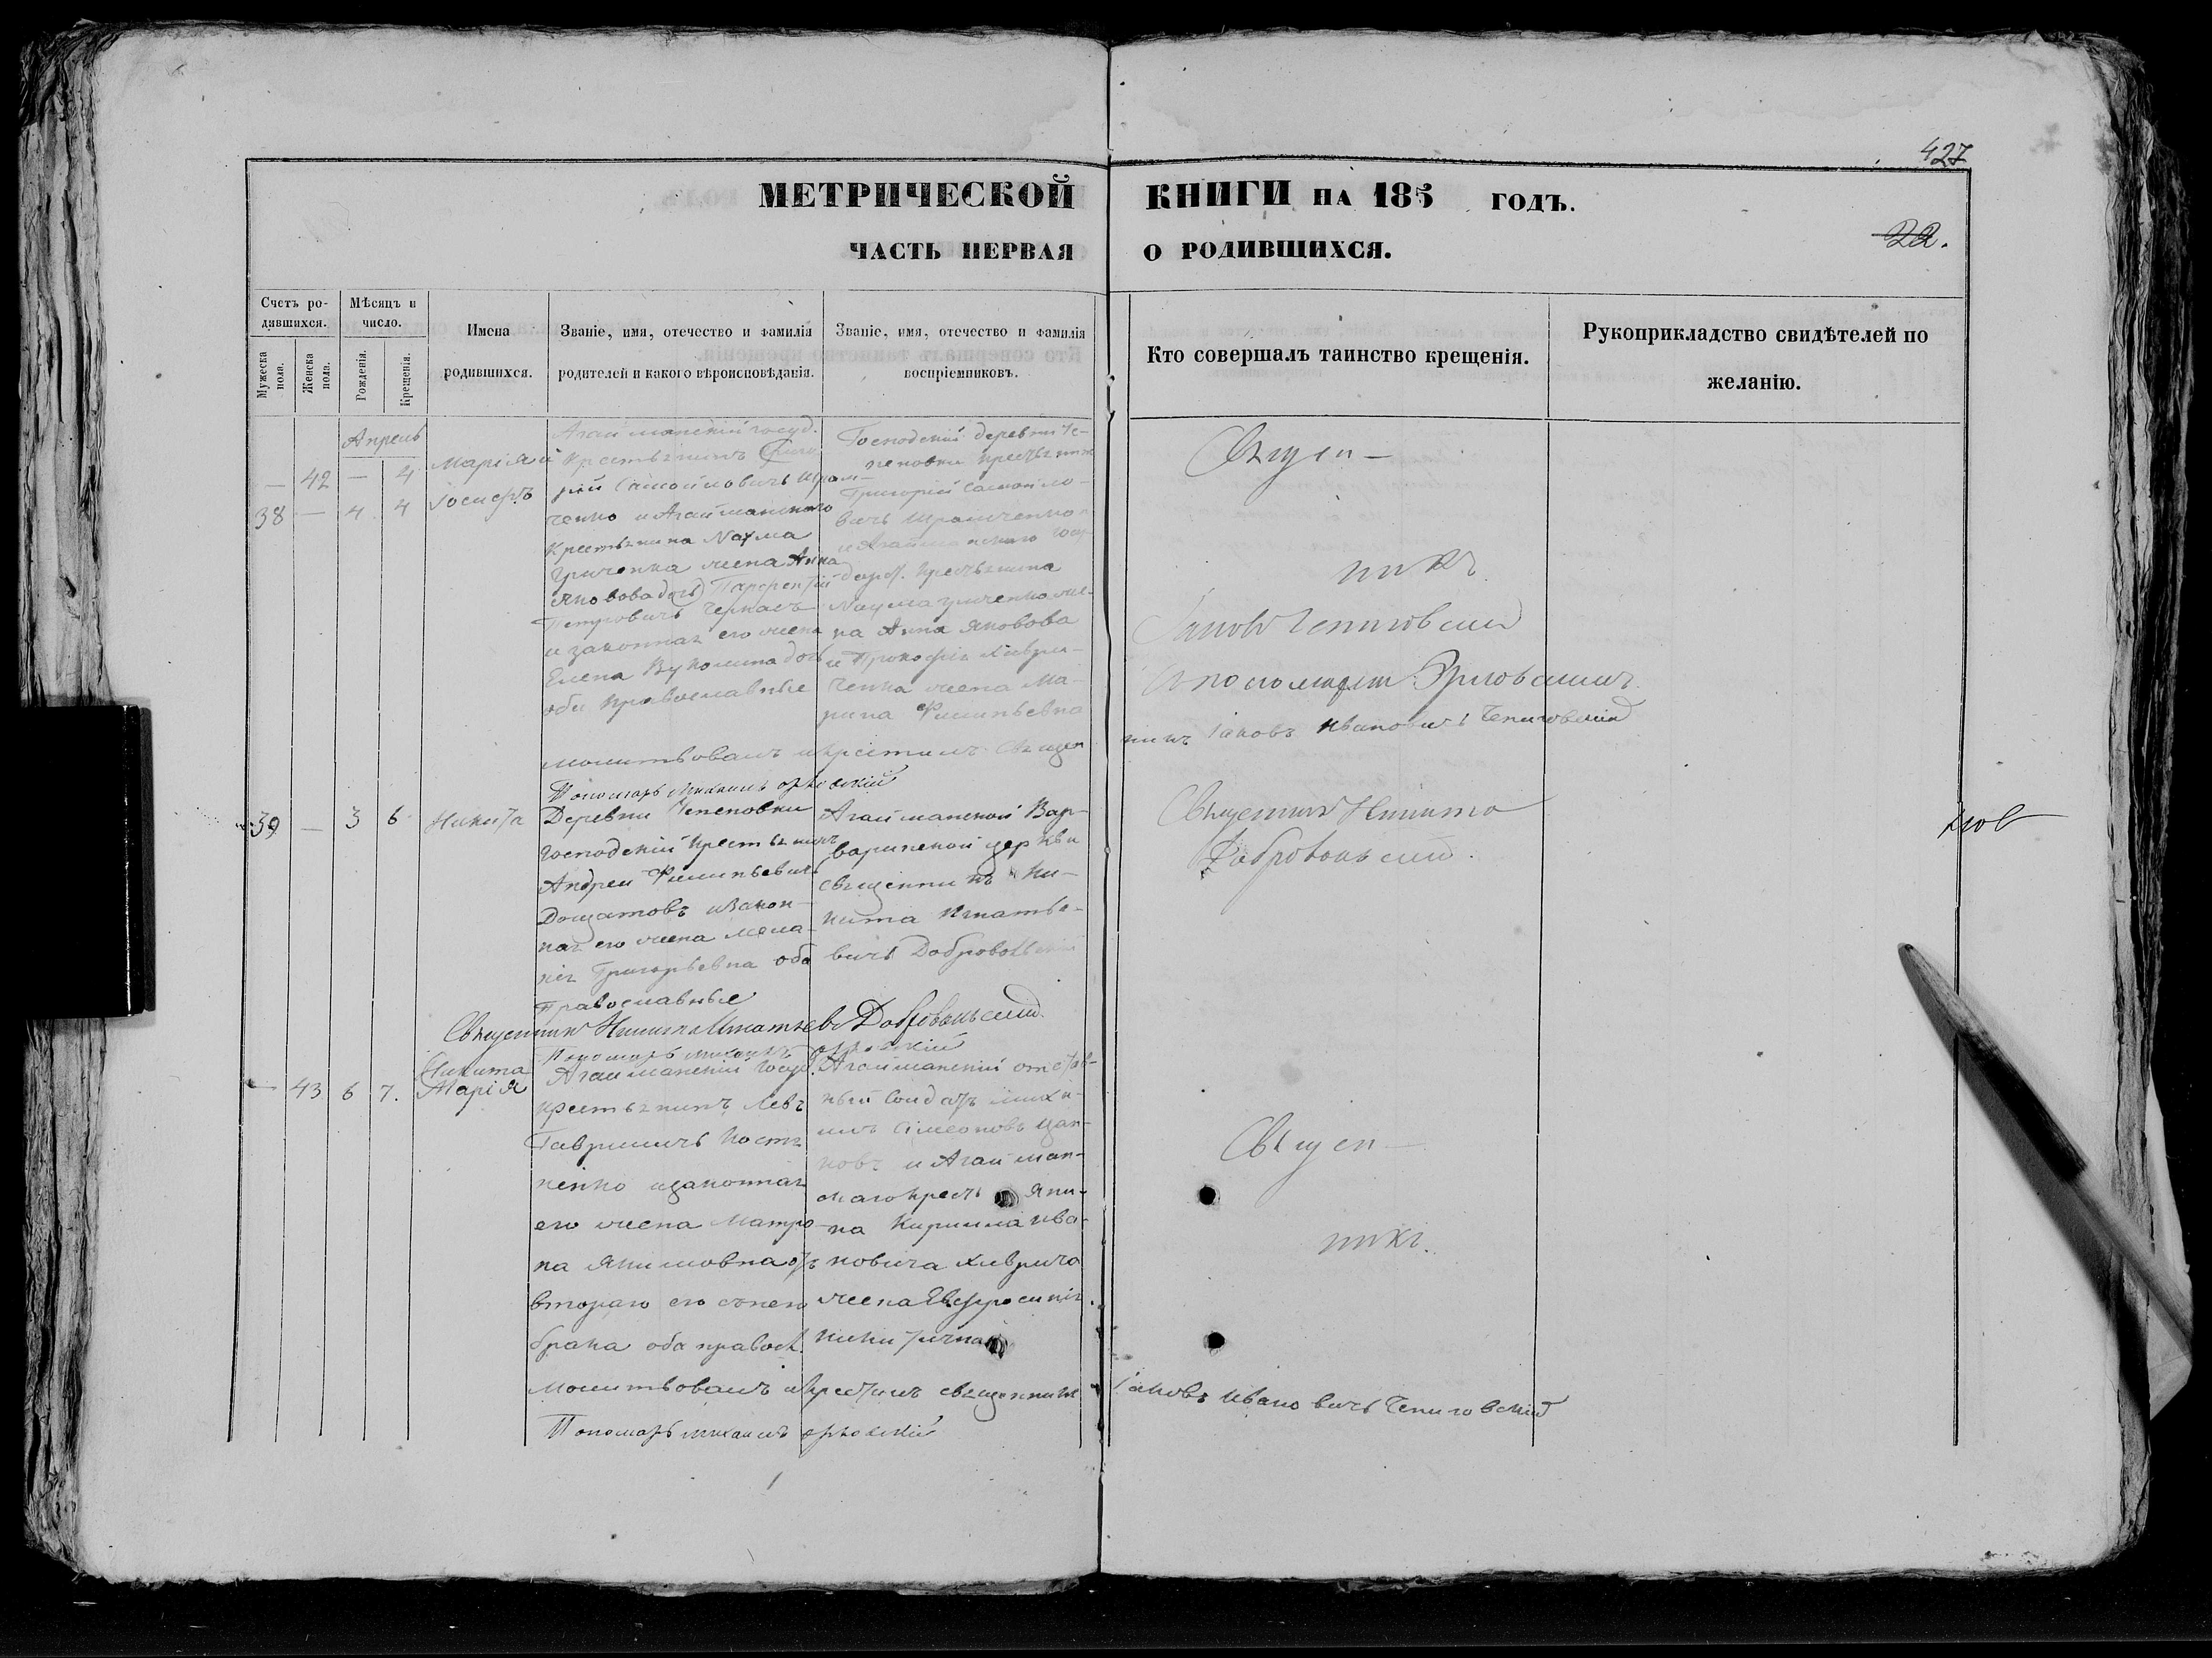 427
МЕТРИЧЕСКОЙ КНИГИ НА 185 ГОДЪ.
22.
ЧАСТЬ ПЕРВАЯ О РОДИВШИХСЯ.
Счетъ ро-
дившихся.
Мужеска
пола.
Женска
пола.
Мѣсяцъ и
число.
Рожденія.
Крещенія.
Имена
родившихся.
Званіе, имя, отечество и фамилія
родителей и какого вѣроисповѣданія.
Званіе, имя, отечество и фамилія
воспріемниковъ.
Кто совершалъ таинство крещенія.
Рукоприкладство свидѣтелей по
желанію.
Апрель
— 42 — 4
38 — 4 4
Марія и
Іосифъ
Агайманскій госуд.
Крестьянинъ Григо-
рій Самойловичъ Храм-
ченко и Агайманскаго
Крестьянина Наума
Гриченка жена Анна
Яковова дочь) Парфентій
Петровичъ Черкасъ
и законная его жена
Елена Вуколина дочь
оби православные
Господскій деревни Че-
пеновки крестьянинъ
Григорій Самойло-
вичъ Храмченко
и Агайманскаго госу-
дарс. крестьянина
Наума Гриченко же-
на Анна Яковова
и Прокофія Хиври-
ченка жена Ма-
рина Филипьевна
молитвовалъ и крестилъ Священ
никъ Іаковъ Ивановичъ Чепиговскій
Пономарь Михаилъ Орловскій
Священ-
никъ
Іаковъ Чепиговскій
39 — 3 6 Никита
Деревни Чепеновки
Господскій крестьянинъ
Андрей Филипьевичъ
Дощатовъ и закон-
ная его жена Мела-
нія Григорьевна оба
Православные
Агайманской Вар-
варинской церкви
священникъ Ни-
кита Игнатье-
вичъ Добровольскій
Священникъ Никита
Добровольскій.
Священникъ Никита Игнатьевъ Добровольскій.
Пономарь Михаилъ Орловскій
— 43 6 7.
Никита
Марія
Агайманскій Госуд.
крестьянинъ Левъ
Гавриличъ Костя
ненко и законная
его жена Матро-
на Якимовна отъ
втораго его с нею
брака оба правосл.
Агайманскій отстав-
ный Солдатъ Миха-
илъ Симеоновъ
и Агайман-
скаго крестьяни-
на Кирилла Ива-
новича Хиврича
жена Евфросинія
Никитична
Священ-
никъ.
молитвовалъ и крестилъ священникъ
Іаковъ Ивановичъ Чепиговскій
Пономарь Михаилъ Орловскій